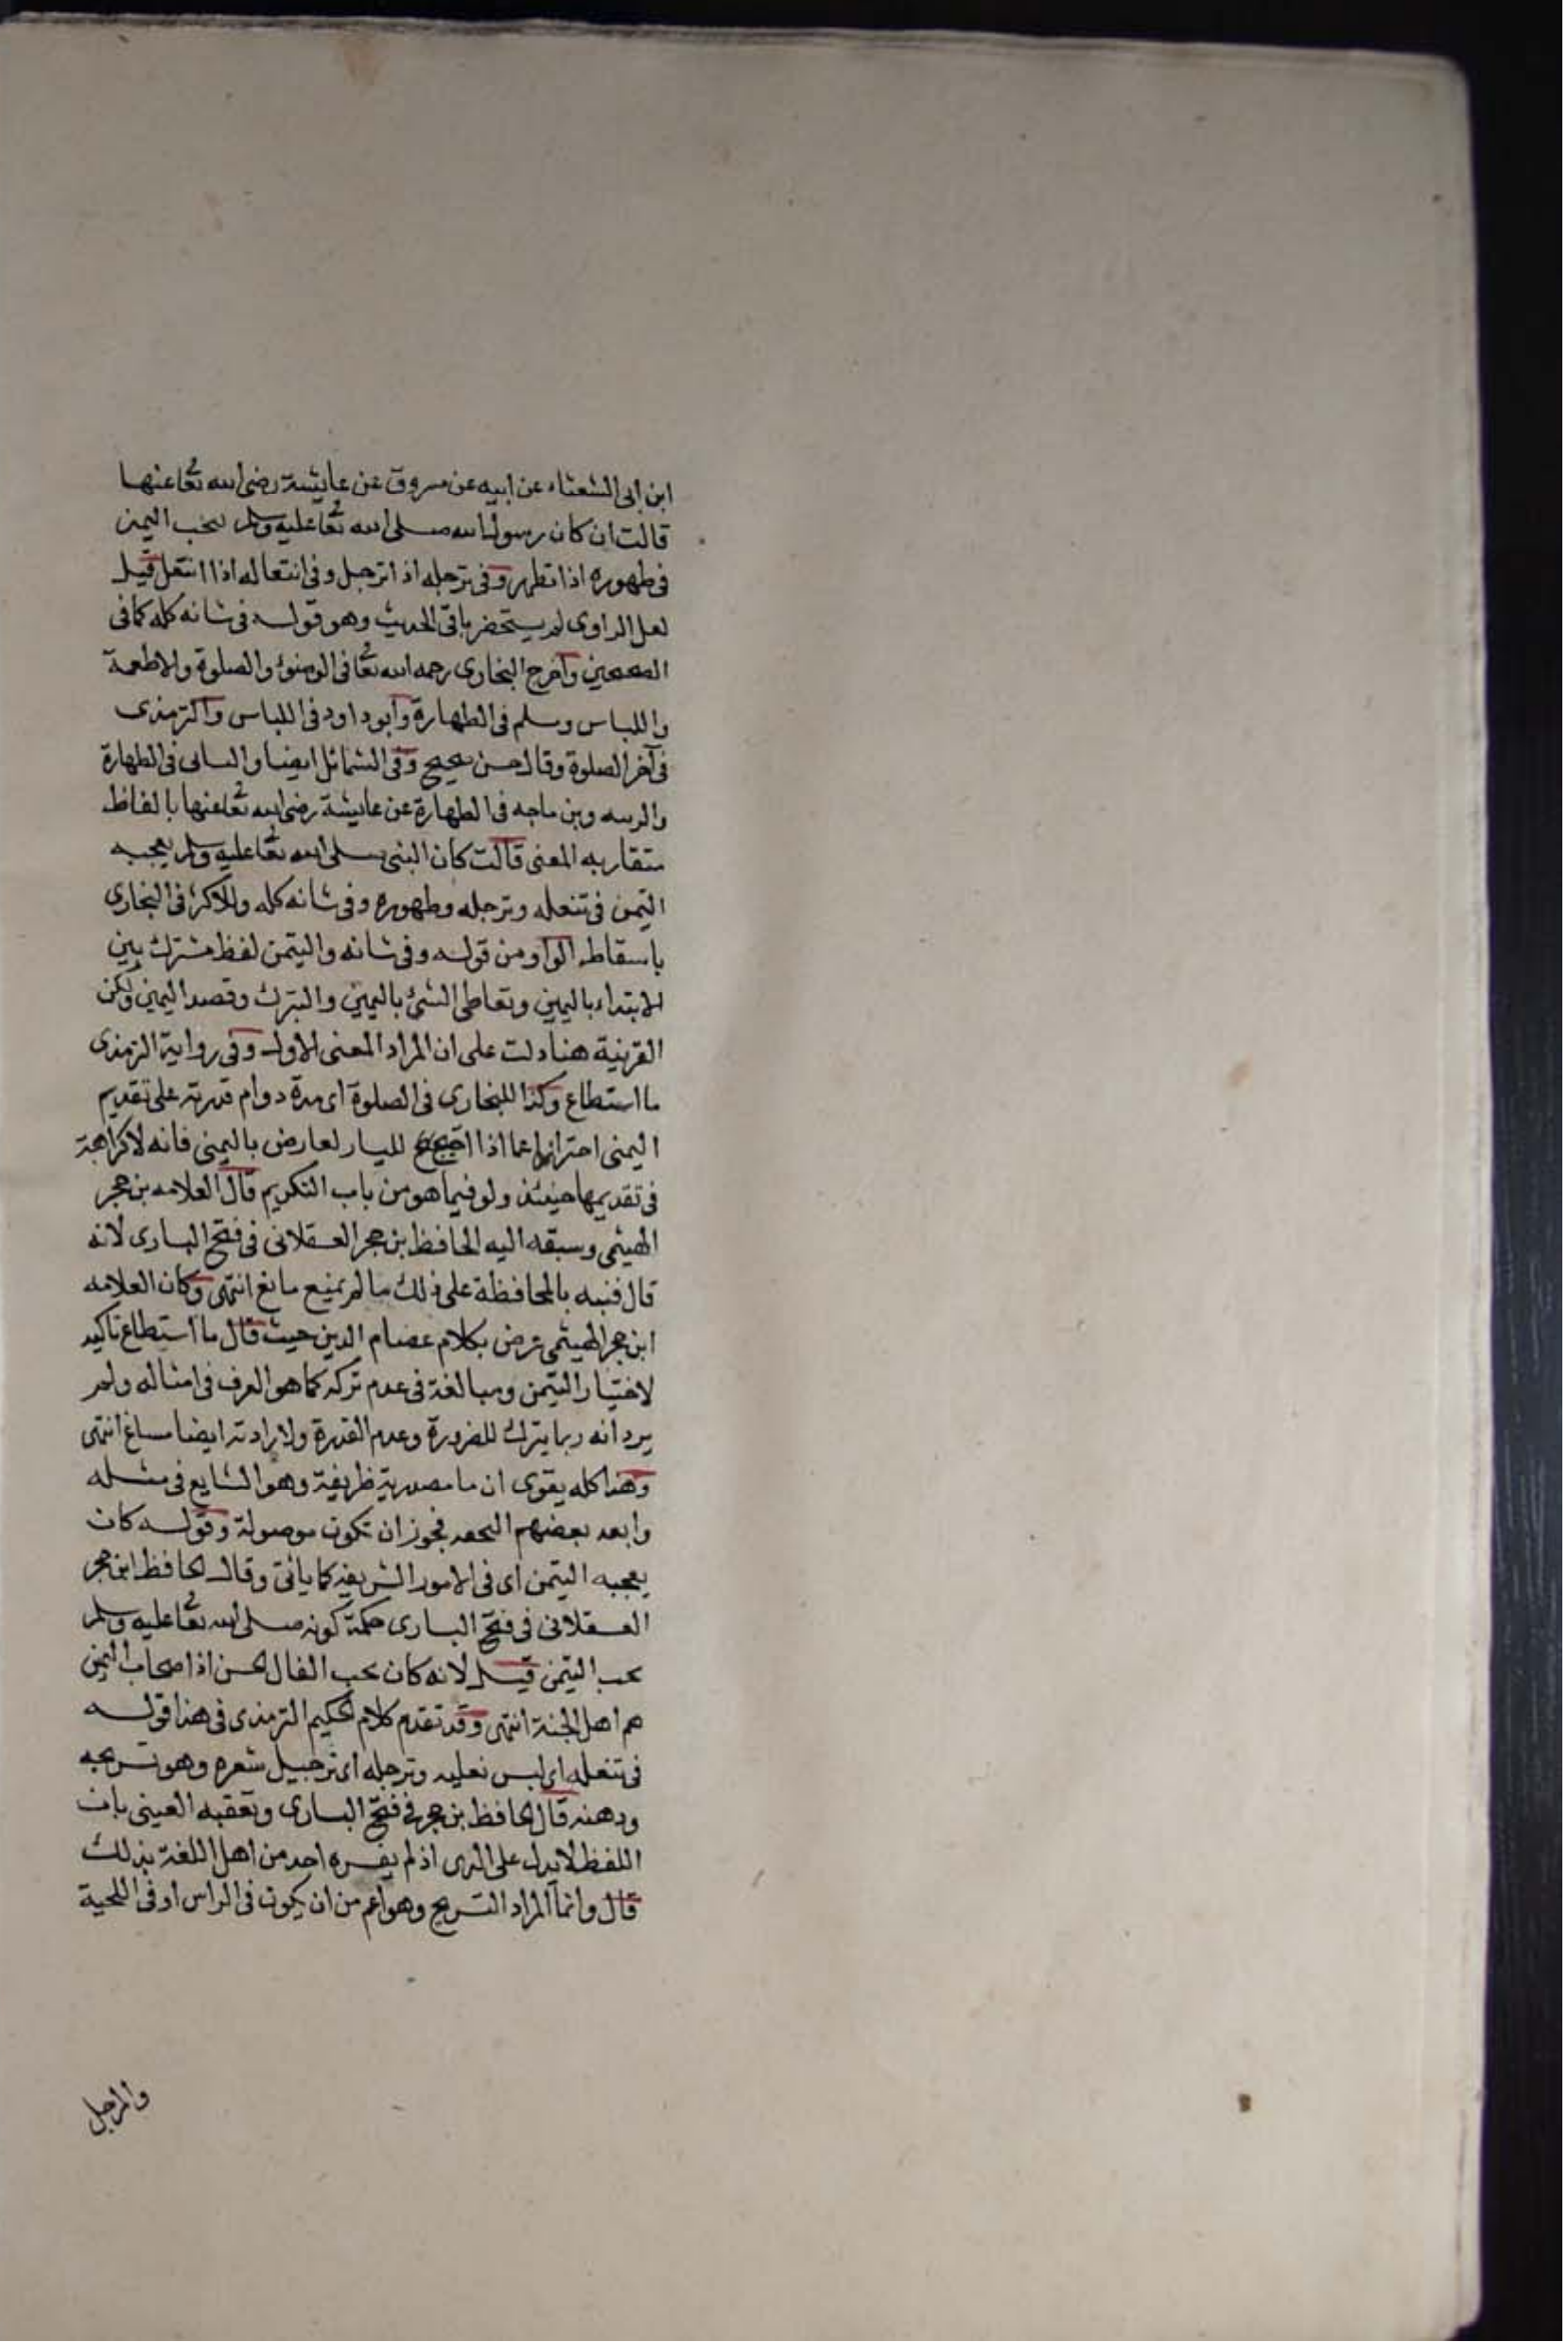 ابن ابى الشعثاء عن ابيه عن مسروق عن عايشة رضى الله تعا عنها
قالت ان كان رسول الله صلى الله تعا عليه وسلم ليحب اليمن
فى طهوره اذا تطهر وفى ترجله اذا ترجل وفى انتعاله اذا انتعل قيل
لعل الراوى لم يستحضر باقى الحديث وهو قوله فى شانه كله كما فى
الصحيحين وأخرج البخارى رحمه الله تعا فى الوضوء والصلوة والاطعمة
واللباس ومسلم فى الطهارة وأبو داود فى اللباس والترمذى
فى آخر الصلوة وقال حسن صحيح وفى الشمائل ايضا والنسائى فى الطهارة
والزينه وبن ماجه فى الطهارة عن عايشة رضى الله تعا عنها بالفاظ
متقاربه المعنى قالت كان النبى صلى الله تعا عليه وسلم يعجبه
التيمن فى تنعله وترجله وطهوره وفى شانه كله والاكثر فى البخارى
باسقاط الواو من قوله وفى شانه والتيمن لفظ مشترك بين
الابتداء باليمين وتعاطى الشئ باليمين والتبرك وقصد اليمين ولكن
القرينة هنا دلت على ان المراد المعنى الاول وفى رواية الترمذى
ما استطاع وكذا للبخارى فى الصلوة اى مدة دوام قدرته على تقديم
اليمنى احترازا عما اذا احتيج لليسار لعارض باليمنى فانه لا كراهة
فى تقديمها حينئذ ولو فيما هو من باب التكريم قال العلامه بن حجر
الهيثمى وسبقه اليه الحافظ بن حجر العسقلانى فى فتح البارى لانه
قال فنبه بالمحافظة على ذلك ما لم يمنع مانع انتهى وكان العلامه
ابن حجر الهيثمى عرض بكلام عصام الدين حيث قال ما استطاع تاكيد
لاختيار التيمن ومبالغة فى عدم تركه كما هو العرف فى امثاله ولم
يرد انه ربما يترك للضرورة وعدم القدرة ولارادته ايضا مساغ انتهى
وهذا كله يقوى ان ما مصدرية ظرفية وهو الشايع فى مثله
وابعد بعضهم البعد فجوز ان تكون موصولة وقوله كان
يعجبه التيمن اى فى الامور الشريفه كما ياتى وقال الحافظ ابن حجر
العسقلانى فى فتح البارى حكمة كونه صلى الله تعا عليه وسلم
يحب التيمن قيل لانه كان يحب الفال الحسن اذ اصحاب اليمين
هم اهل الجنة انتهى وقد تقدم كلام الحكيم الترمذى فى هذا قوله
فى تنعله اى لبس نعليه وترجله اى ترجيل شعره وهو تسريحه
ودهنه قال الحافظ بن حجر فى فتح البارى وتعقبه العينى بان
اللفظ لا يدل على الدهن اذ لم يفسره احد من اهل اللغة بذلك
قال وانما المراد التسريح وهو اعم من ان يكون فى الراس او فى اللحية
والمرجل